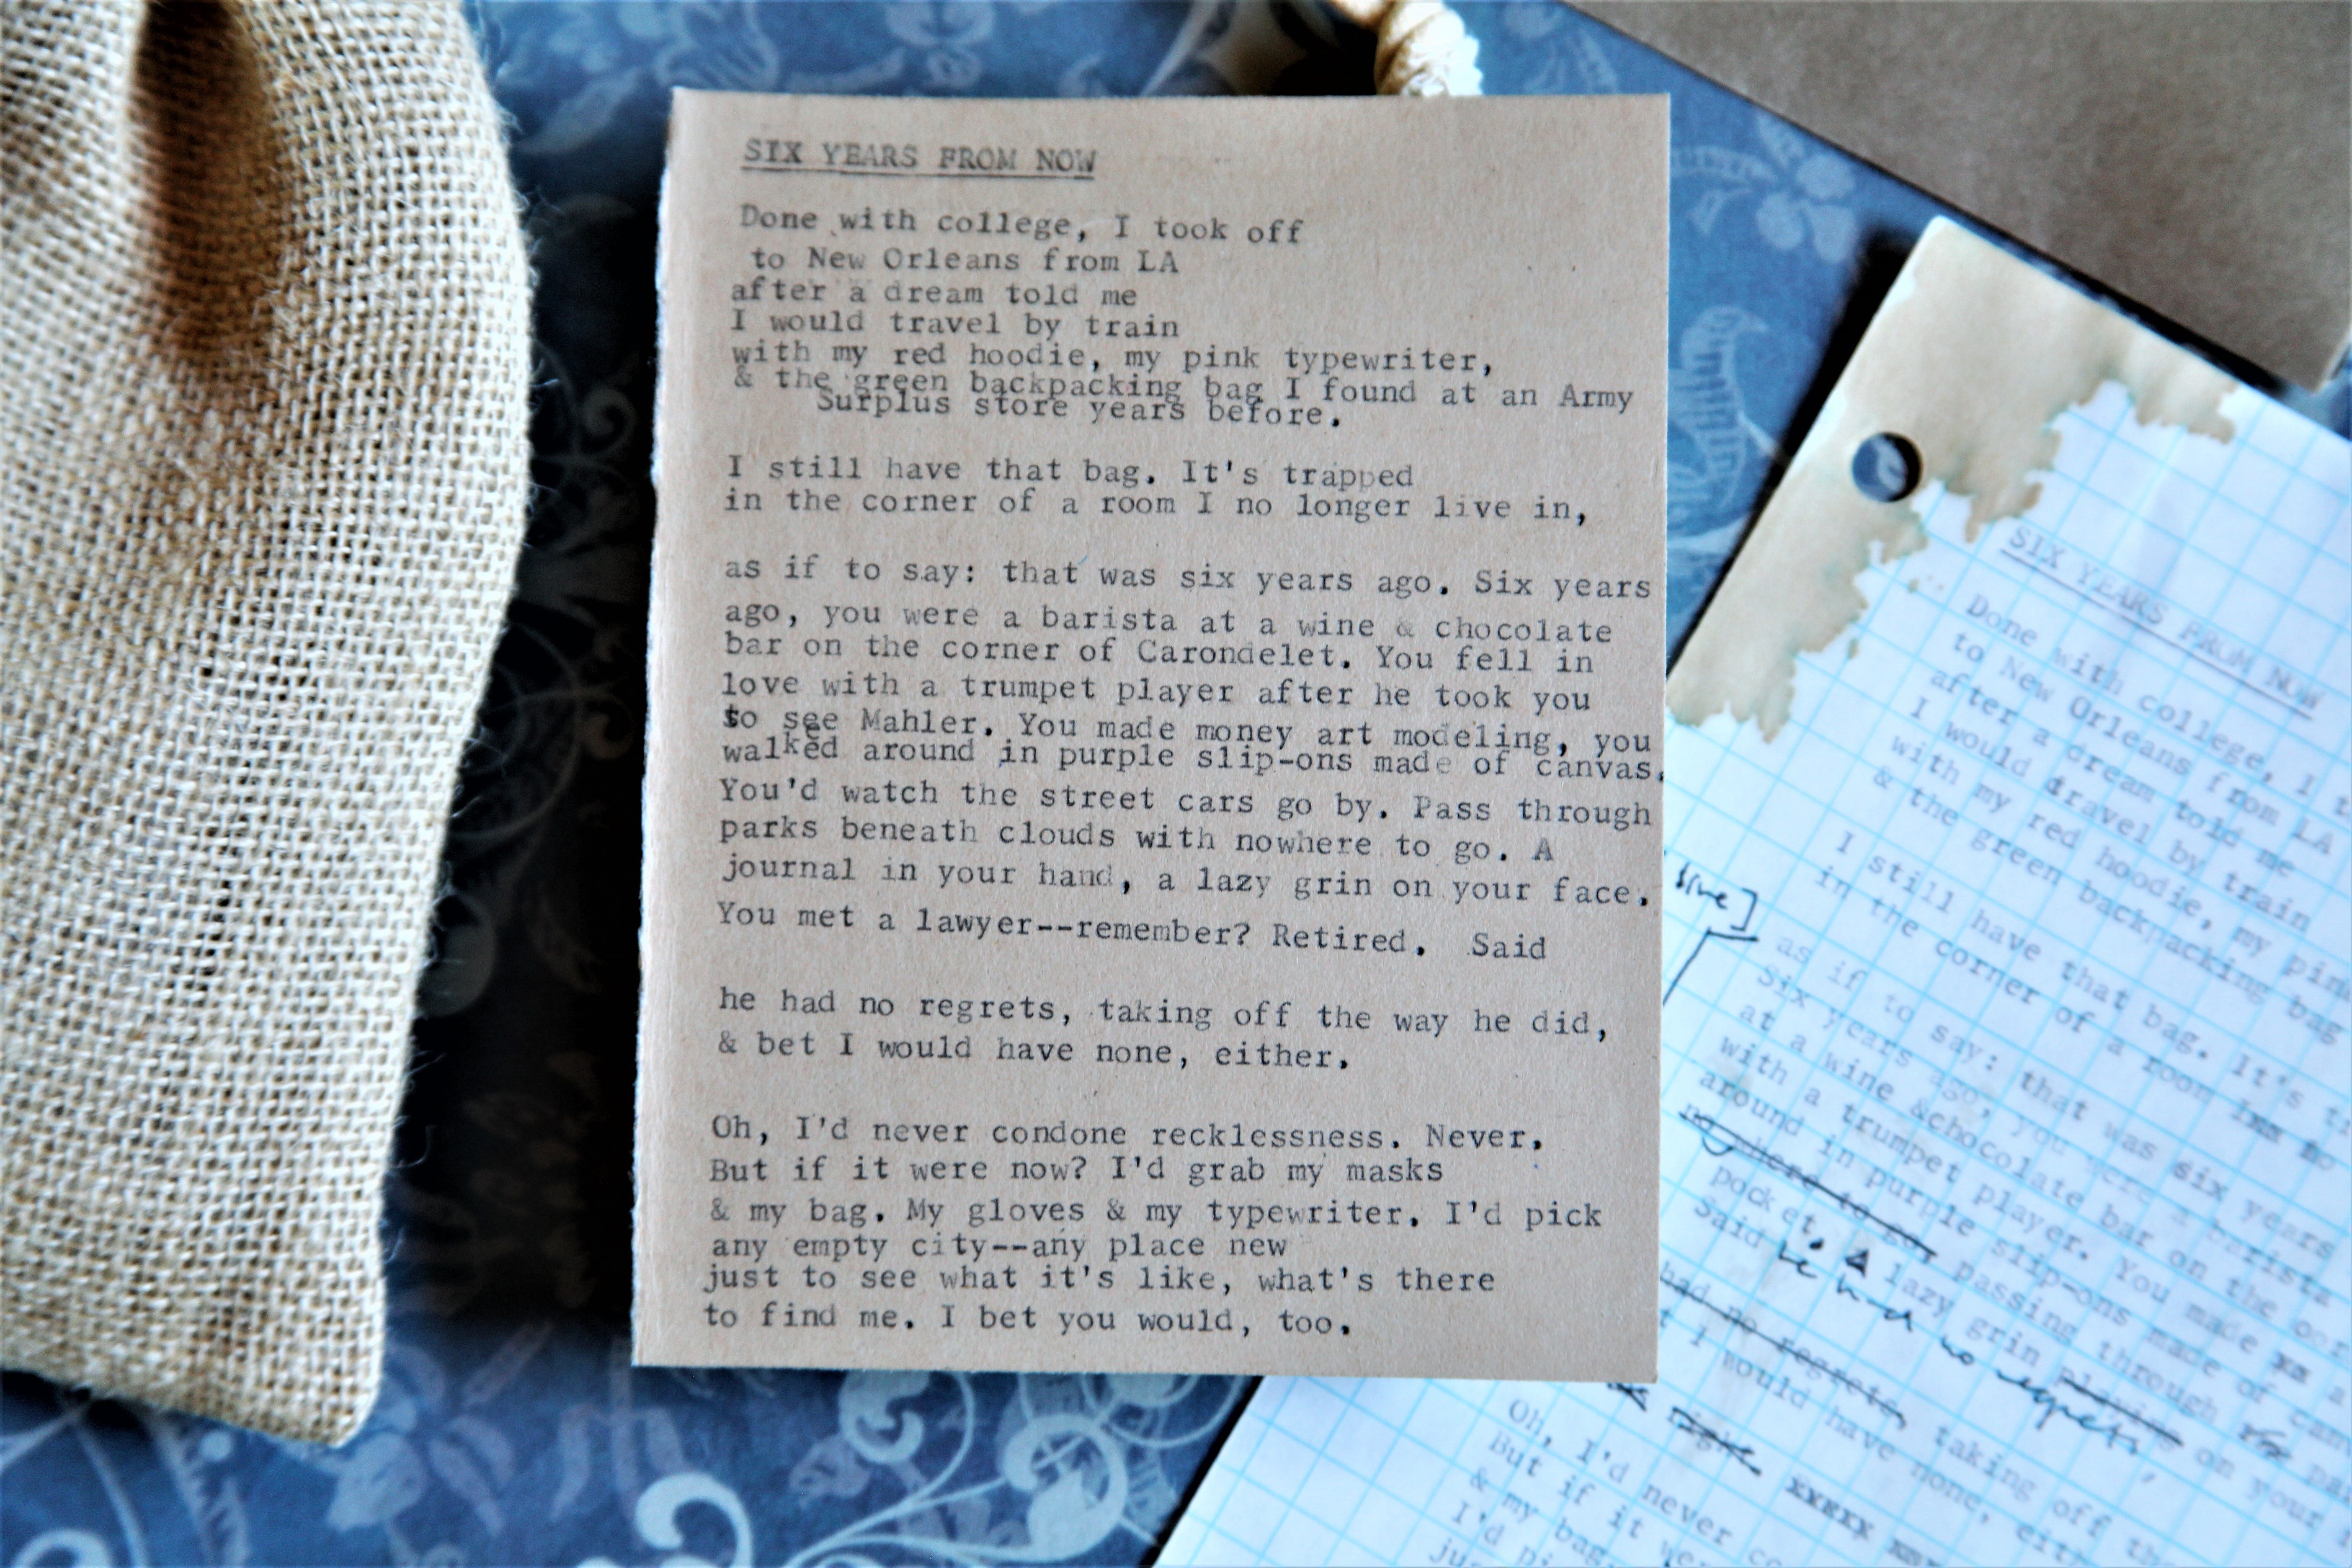 SIX YEARS FROM NOW
Done with college, I took off
to New Orleans from LA
after a dream told me
I would travel by train
with my red hoodie, my pink typewriter,
& the green backpacking bag I found at an Army
Surplus store years before.
I still have that bag. It's trapped
in the corner of a room I no longer live in,
as if to say: that was six years ago. Six years
ago, you were a barista at a wine & chocolate
bar on the corner of Carondelet. You fell in
love with a trumpet player after he took you
to see Mahler. You made money art modeling, you
walked around in purple slip-ons made of canvas.
You'd watch the street cars go by. Pass through
parks beneath clouds with nowhere to go. A
journal in your hand, a lazy grin on your face.
You met a lawyer--remember? Retired. Said
he had no regrets, taking off the way he did,
& bet I would have none, either.
Oh, I'd never condone recklessness. Never.
But if it were now? I'd grab my masks
& my bag. My gloves & my typewriter. I'd pick
any empty city--any place new
just to see what it's like, what's there
to find me. I bet you would, too.
SIX YEARS FROM NOW
Done with college, I
to New Orleans from LA
after a dream told me
I would travel by train
with my red hoodie, my pin
& the green backpacking bag
I still have that bag. It's
in the corner of a room
line]
as if to say: that was six years
Six years ago, you were a barista
at a wine &chocolate bar on the
with a trumpet player. You made
around in purple slip-ons made of
nowhere to go, passing through
pocket. A lazy grin playing on your
Said he had no regrets,
had no regrets, taking off
I would have none,
xxxxx
Oh, I'd never
But if it
& my bag
I'd